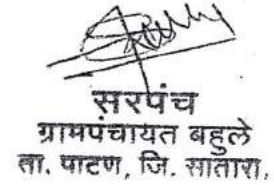 सरपंच
ग्रामपंचायत बहुले
ता. पाटण, जि. सातारा,